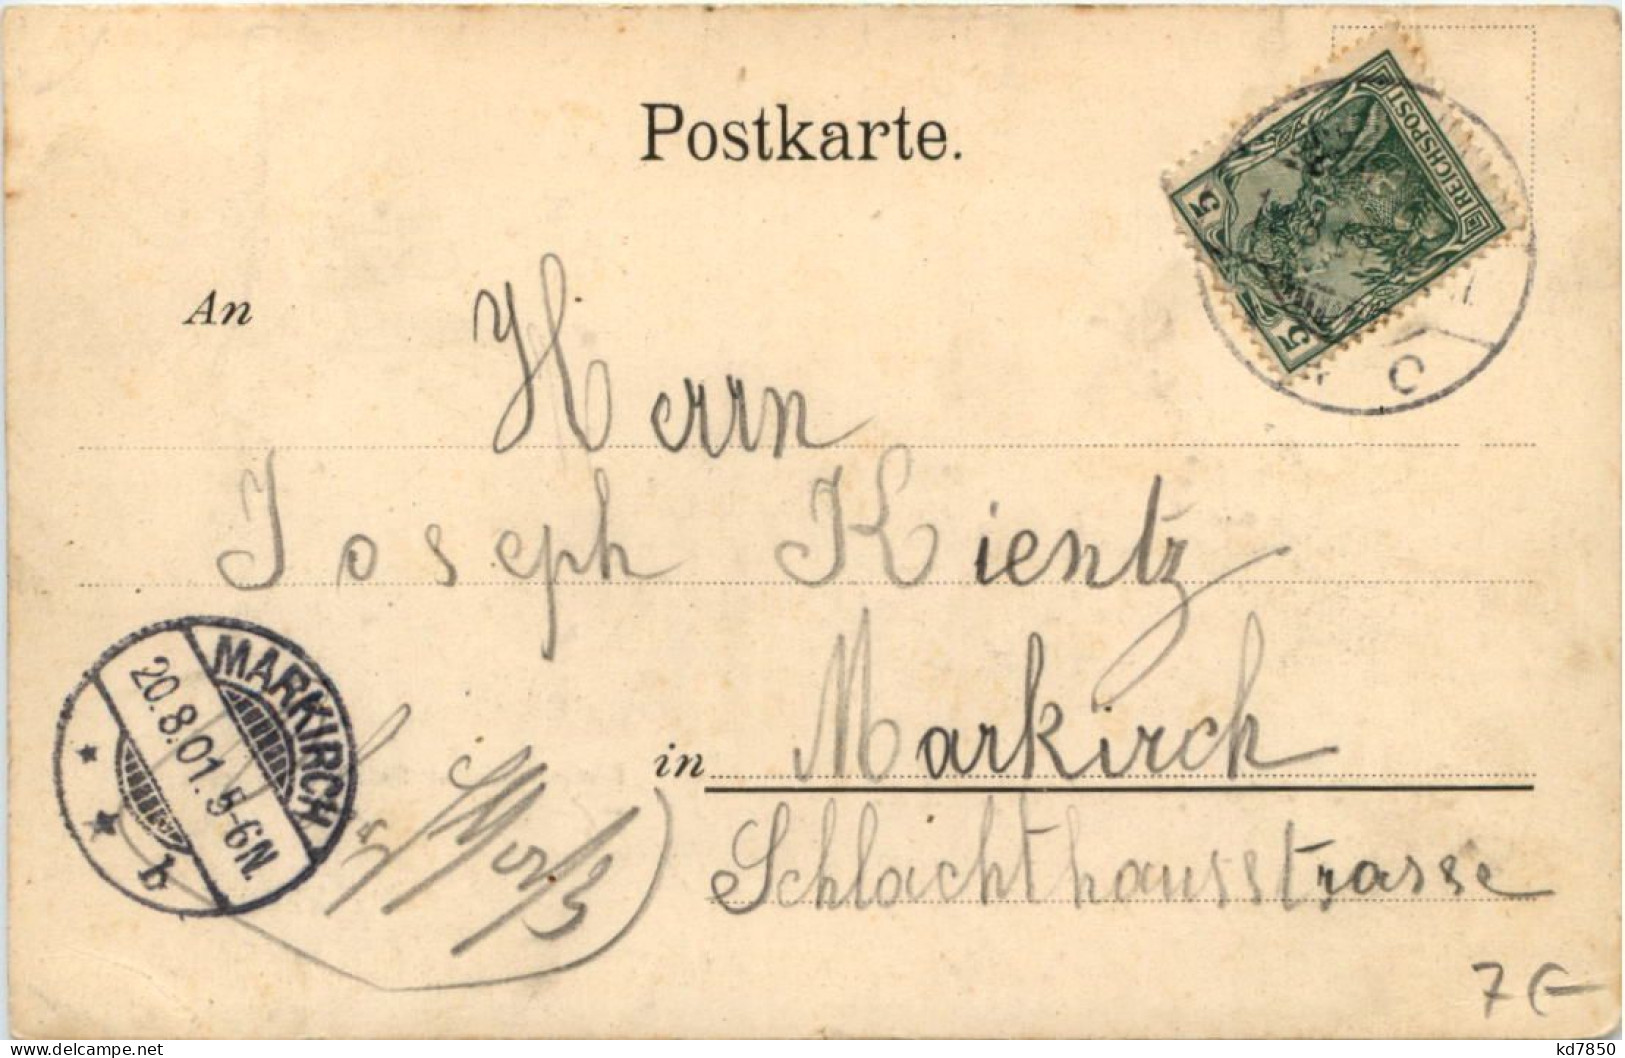 Postkarte.
REICHSPOST
5 5
C
An Herrn
Joseph Kientz
in Markirch
Schlachthausstrasse
MARKIRCH
20.8.01. 5-6N.
b
7€
kd7850